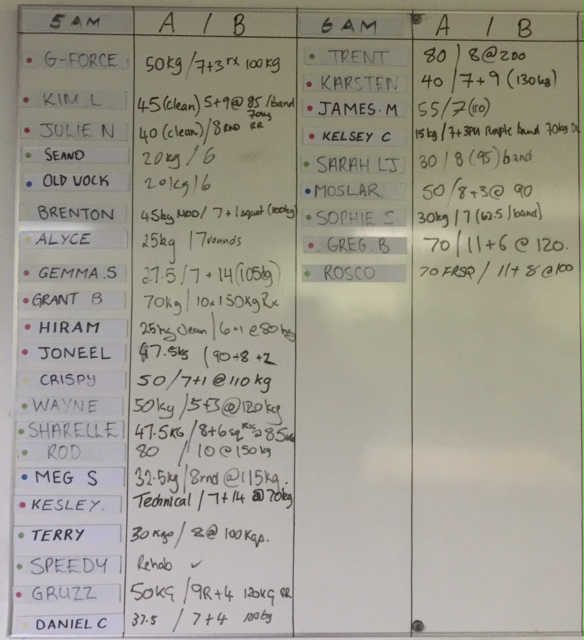 5 AM A / B
G-FORCE 50kg / 7+3 rx 100kg
KIM L 45 (clean) 5+9@ 85 /band
70kg
JULIE N 40 (clean) / 8 RND RR
SEANO 20kg / 6
OLD VOCK 20kg / 6
BRENTON 45kg MOD / 7+1 squat (100kg)
ALYCE 25kg / 7 rounds
GEMMA.S 27.5 / 7 + 14 (105kg)
GRANT B 70kg / 10 x 150kg Rx
HIRAM 25kg clean / 6+1 @ 80 kg
JONEEL 47.5kg / 90+8 +2
CRISPY 50 / 7+1 @ 110 kg
WAYNE 50kg / 5+3 @ 120kg
SHARELLE 47.5KG / 8+6 85kg
ROD 80 / 10 @ 150kg
MEG S 32.5kg / 8rnd @ 115kg.
KESLEY. Technical / 7+14 @ 70kg
TERRY 30 Kgs / 8@ 100 Kgs.
SPEEDY Rehab ✓
GRUZZ 50KG / 9R+4 120KG RR
DANIEL C 37.5 / 7+4 100kg
6 AM A / B
TRENT 80 / 8 @ 200
KARSTEN 40 / 7+9 (130kg)
JAMES.M 55 / 7 (110)
KELSEY C 15kg / 7+3PU Purple band 70kg DL
SARAH LJ 30 / 8 (95) band
MOSLAR 50 / 8+3 @ 90
SOPHIE S 30kg / 7 (62.5 / band)
GREG.B 70 / 11+6 @ 120.
ROSCO 70 FRSQ / 11+ 8 @ 100